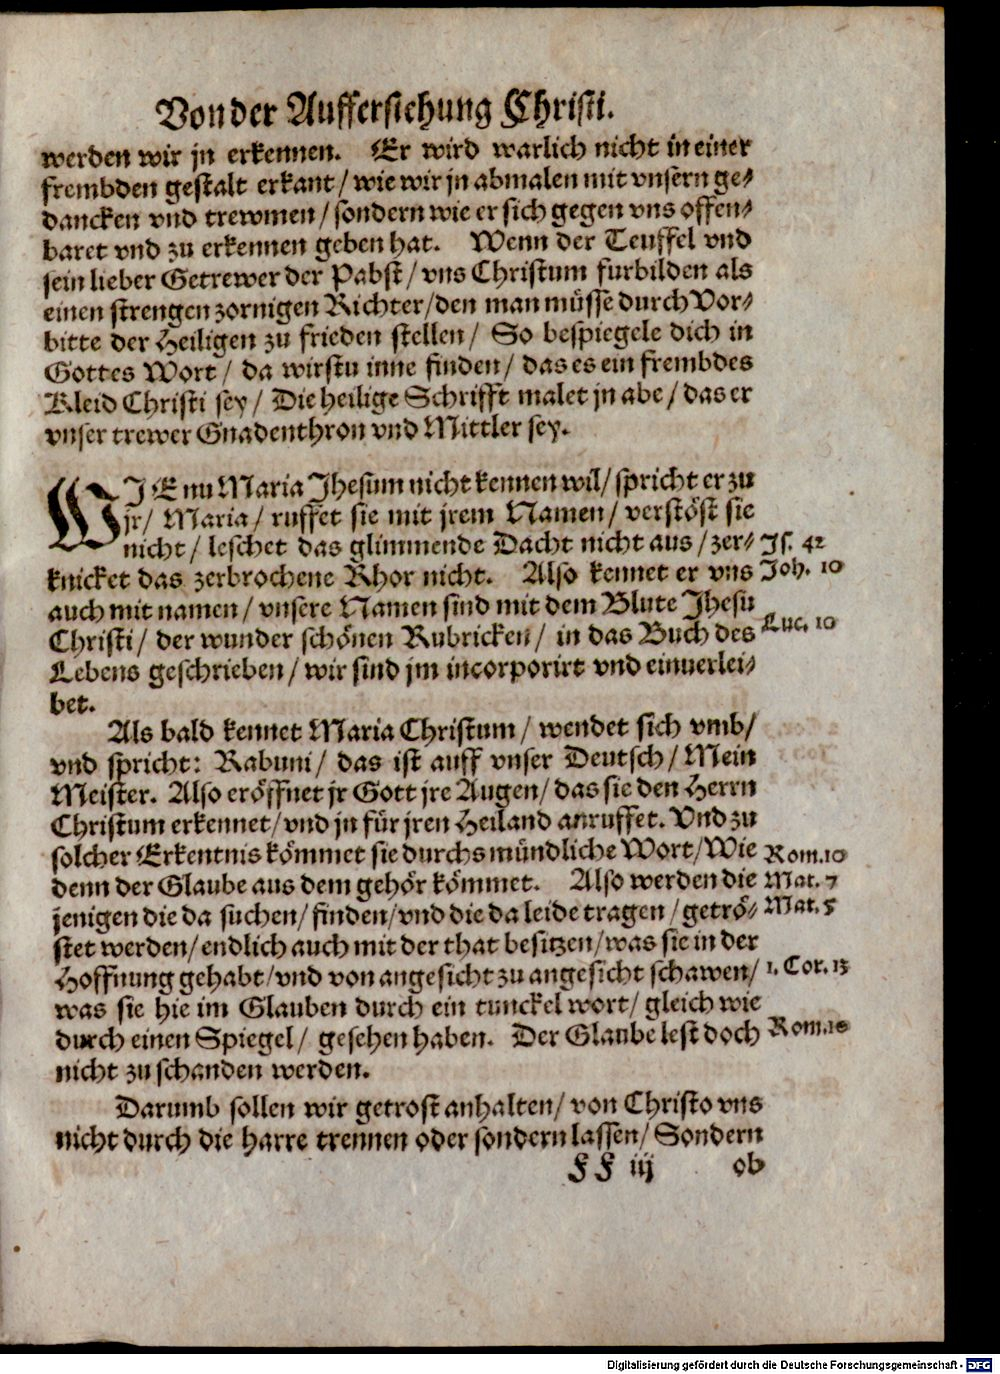 Von der Aufferstehung Christi.
werden wir jn erkennen. Er wird warlich nicht in einer
frembden gestalt erkant / wie wir jn abmalen mit vnsern ge⸗
dancken vnd trewmen / sondern wie er sich gegen vns offen⸗
baret vnd zu erkennen geben hat. Wenn der Teuffel vnd
sein lieber Getrewer der Pabst / vns Christum furbilden als
einen strengen zornigen Richter / den man müsse durch Vor⸗
bitte der Heiligen zu frieden stellen / So bespiegele dich in
Gottes Wort / da wirstu inne finden / das es ein frembdes
Kleid Christi sey / Die heilige Schrifft malet jn abe / das er
vnser trewer Gnadenthron vnd Mittler sey.
WJE nu Maria Jhesum nicht kennen wil / spricht er zu
jr / Maria / ruffet sie mit jrem Namen / verstöst sie
nicht / leschet das glimmende Dacht nicht aus / zer⸗ Js. 42
knicket das zerbrochene Rhor nicht. Also kennet er vns Joh. 10
auch mit namen / vnsere Namen sind mit dem Blute Jhesu
Christi / der wunder schönen Rubricken / in das Buch des Luc. 10
Lebens geschrieben / wir sind jm incorporirt vnd einuerlei⸗
bet.
Als bald kennet Maria Christum / wendet sich vmb /
vnd spricht: Rabuni / das ist auff vnser Deutsch / Mein
Meister. Also eröffnet jr Gott jre Augen / das sie den Herrn
Christum erkennet / vnd jn für jren Heiland anruffet. Vnd zu
solcher Erkentnis kömmet sie durchs mündliche Wort / Wie Rom. 10
denn der Glaube aus dem gehör kömmet. Also werden die Mat. 7
jenigen die da suchen / finden / vnd die da leide tragen / getrö⸗ Mat. 5
stet werden / endlich auch mit der that besitzen / was sie in der
Hoffnung gehabt / vnd von angesicht zu angesicht schawen / 1. Cor. 13
was sie hie im Glauben durch ein tunckel wort / gleich wie
durch einen Spiegel / gesehen haben. Der Glaube lest doch Rom. 10
nicht zu schanden werden.
Darumb sollen wir getrost anhalten / von Christo vns
nicht durch die harre trennen oder sondern lassen / Sondern
FF iij ob
Digitalisierung gefördert durch die Deutsche Forschungsgemeinschaft - DFG